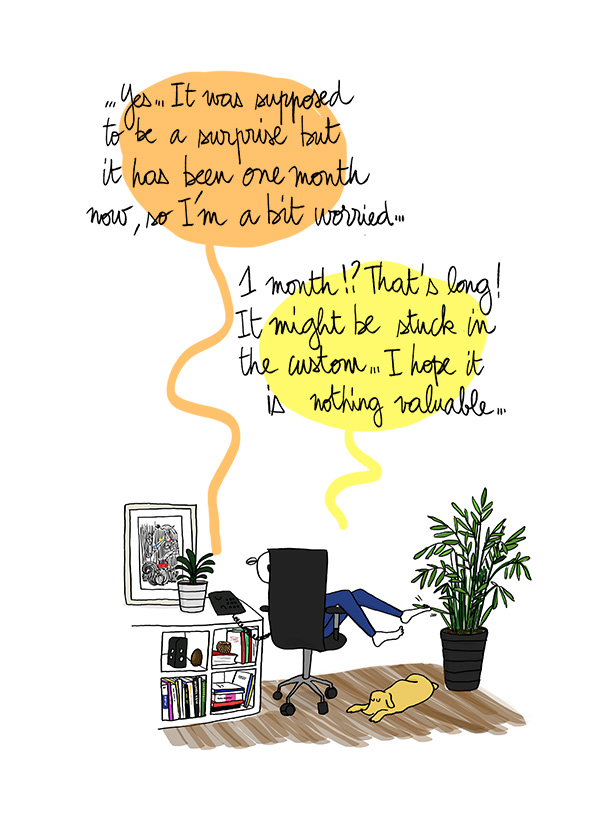 ...Yes... It was supposed
to be a surprise but
it has been one month
now, so I'm a bit worried...
1 month!? That's long!
It might be stuck in
the custom... I hope it
is nothing valuable...